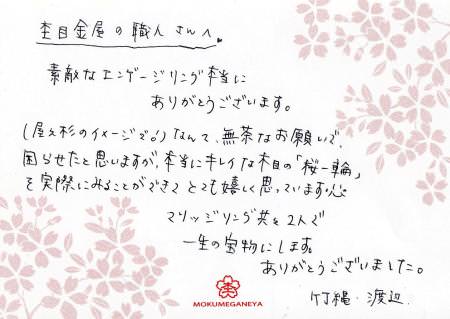 杢目金屋の職人さんへ。
素敵なエンゲージリング本当に
ありがとうございます。
(屋久杉のイメージで。)なんて、無茶なお願いで、
困らせたと思いますが、本当にキレイな木目の「桜一輪」
を実際にみることができて とても嬉しく思っています
マリッジリング共々2人で
一生の宝物にします。
ありがとうございました。
竹縄・渡辺.
MOKUMEGANEYA